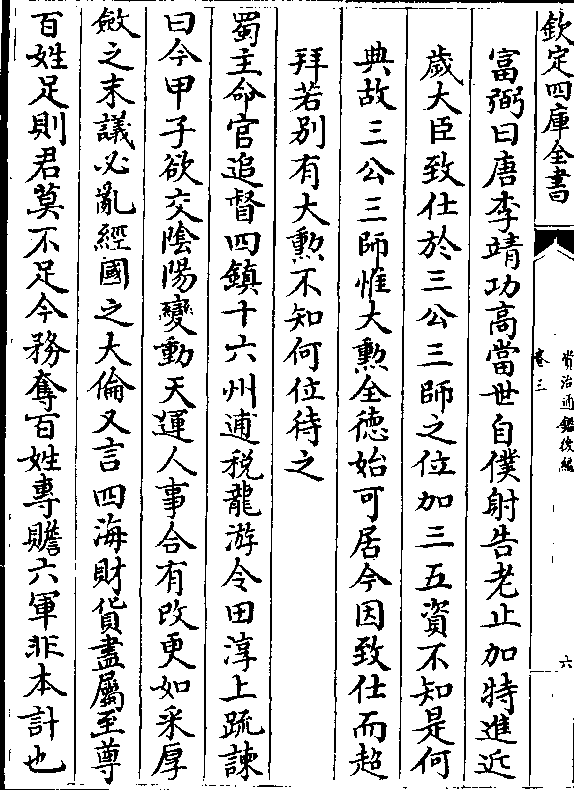 欽定四庫全書
資治通鑑後編
卷三
六
富弼曰唐李靖功高當世自僕射告老止加特進近
歲大臣致仕於三公三師之位加三五資不知是何
典故三公三師惟大勲全德始可居今因致仕而超
拜若别有大勲不知何位待之
蜀主命官追督四鎮十六州逋税龍游令田淳上疏諫
曰今甲子欲交陰陽變動天運人事合有改更如采厚
斂之末議必亂經國之大倫又言四海財貨盡屬至尊
百姓足則君莫不足今務奪百姓專贍六軍非本計也